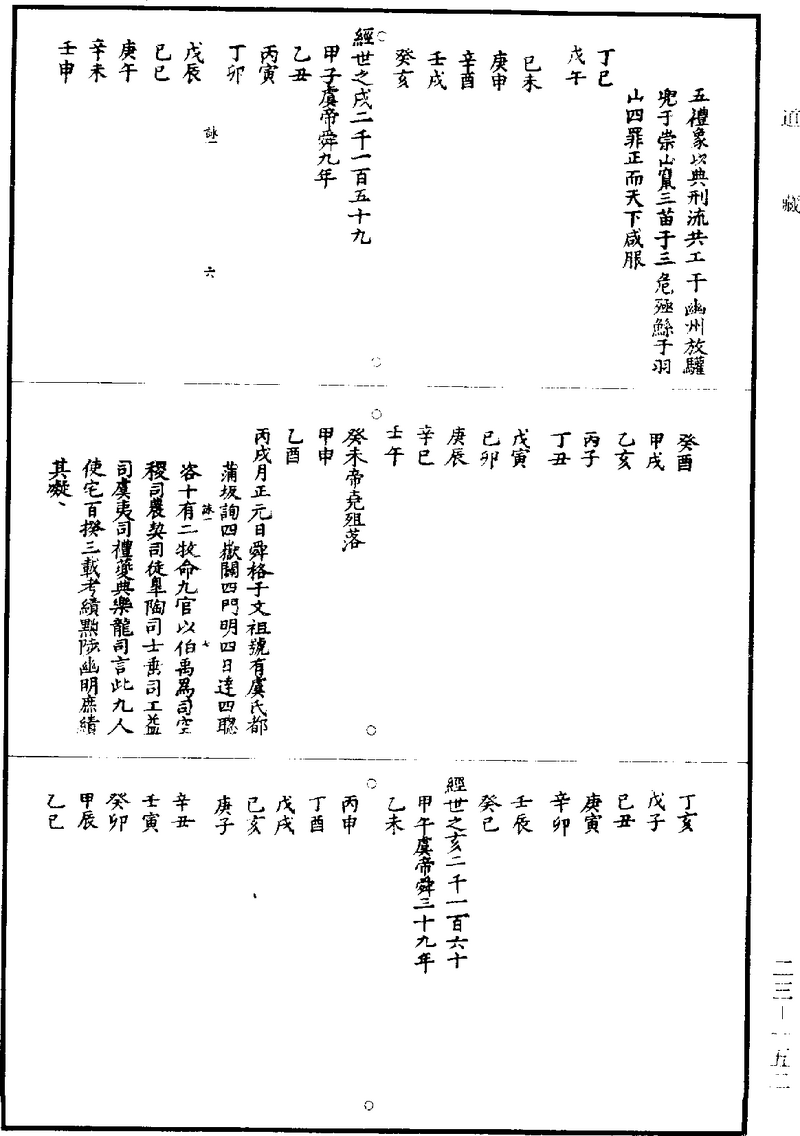 道藏
五禮象以典刑流共工于幽州放驩
兜于崇山竄三苗于三危殛鯀于羽
山四罪正而天下咸服
丁巳
戊午
己未
庚申
辛酉
壬戌
癸亥
經世之戌二千一百五十九
甲子虞帝舜九年
乙丑
丙寅
丁卯
戊辰
詠一 六
己巳
庚午
辛未
壬申
癸酉
甲戌
乙亥
丙子
丁丑
戊寅
己卯
庚辰
辛巳
壬午
癸未帝堯殂落
甲申
乙酉
丙戌月正元日舜格于文祖號有虞氏都
蒲坂詢四嶽闢四門明四目達四聰
詠一 七
咨十有二牧命九官以伯禹為司空
稷司農契司徒臯陶司士垂司工益
司虞夷司禮夔典樂龍司言此九人
使宅百揆三載考績黜陟幽明庶績
其凝、
丁亥
戊子
己丑
庚寅
辛卯
壬辰
癸巳
經世之亥二千一百六十
甲午虞帝舜三十九年
乙未
丙申
丁酉
戊戌
己亥
庚子
辛丑
壬寅
癸卯
甲辰
乙巳
二三-一五二